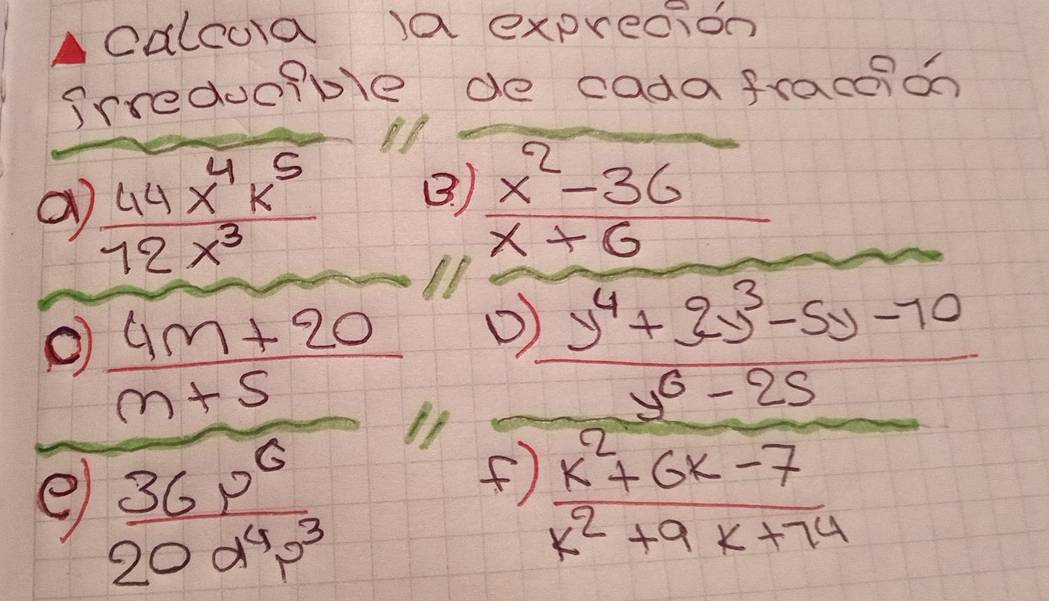 calcula la expreción
irreducible de cada fracción
a) 44x⁴k⁵ / 12x³ B) x²-36 / x+6
c) 4m+20 / m+5 D) y⁴+2y³-5y-10 / y⁶-25
e) 36p⁶ / 20d⁴p³ f) k²+6k-7 / k²+9k+14